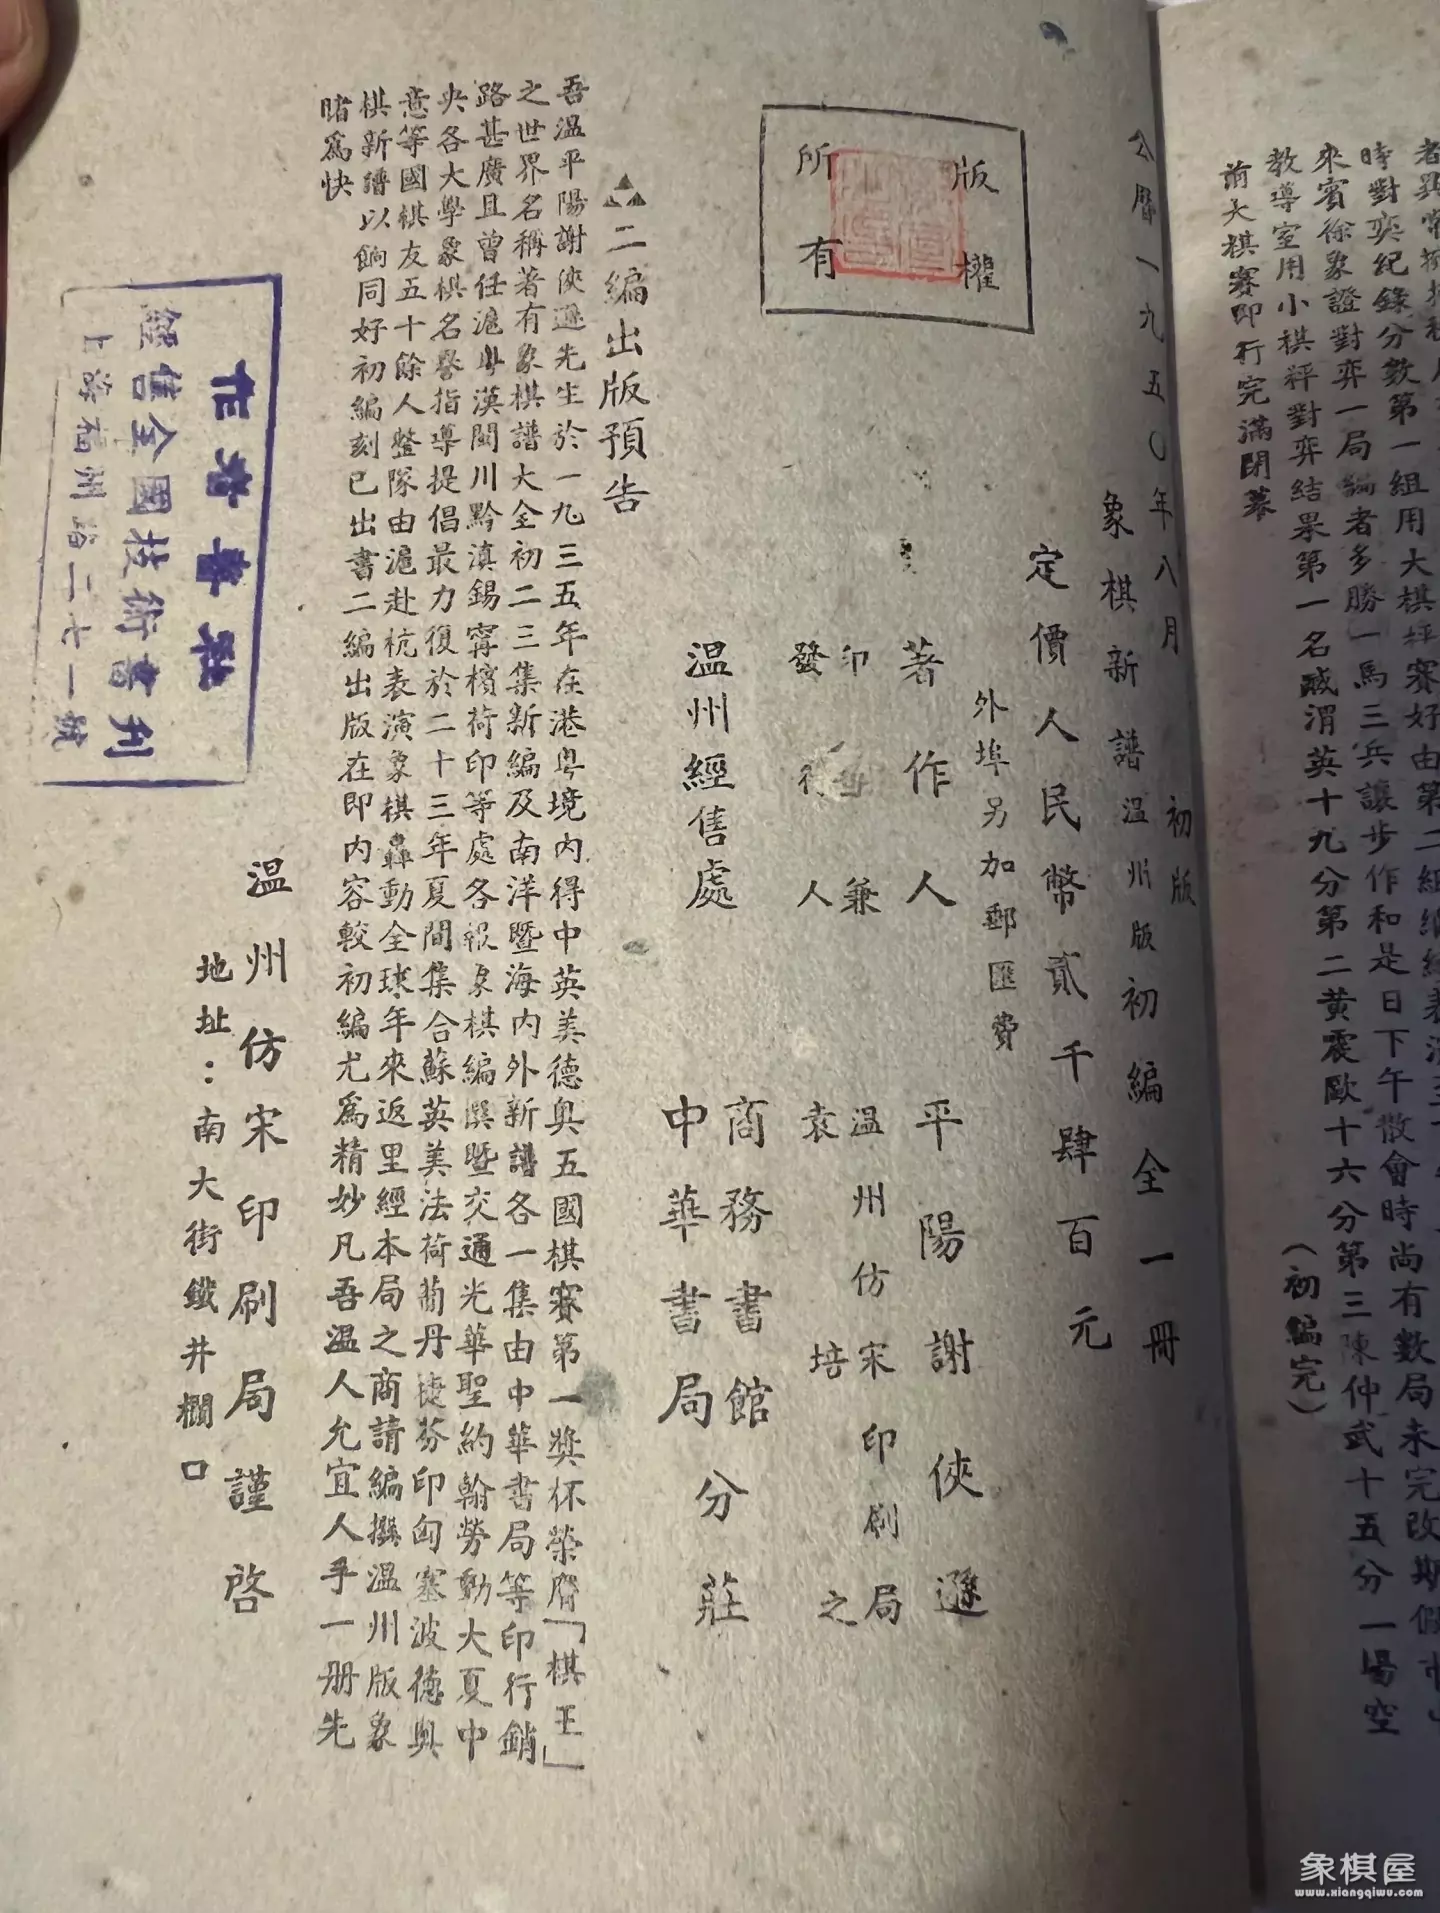 時對奕紀錄分數第一組用大棋坪賽好由第二組
來賓徐象證對弈一局編者多勝一馬三兵讓步作和是日下午散會時尚有數局未完改期假
教導室用小棋秤對弈結果第一名臧渭英十九分第二黄震歐十六分第三陳仲武十五分一場空
前大棋賽即行完滿閉幕
（初編完）
公曆一九五〇年八月初版
象棋新譜温州版初編全一冊
定價人民幣貳千肆百元
外埠另加郵匯費
版權
所有
著作人 平陽謝俠遜
印 兼 温州仿宋印刷局
發行人 袁培之
温州經售處
商務書館
中華書局
分莊
二編出版預告
吾温平陽謝俠遜先生於一九三五年在港粤境内得中英美德奥五國棋賽第一獎杯榮膺「棋王」
之世界名稱著有象棋譜大全初二三集新編及南洋暨海内外新譜各一集由中華書局等印行銷
路甚廣且曾任滬粤漢閩川黔滇錫甯檳荷印等處各報象棋編撰暨交通光華聖約翰勞動大夏中
央各大學象棋名譽指導提倡最力復於二十三年夏間集合蘇英美法荷蘭丹捷芬印匈塞波德奥
意等國棋友五十餘人整隊由滬赴杭表演象棋轟動全球年來返里經本局之商請編撰温州版象
棋新譜以餉同好初編刻已出書二編出版在即内容較初編尤爲精妙凡吾温人允宜人手一册先
睹爲快
温州仿宋印刷局謹啓
地址：南大街鐵井欄口
作者書社
經售全國技術書刊
上海福州路二七一號
象棋屋
www.xiangqiwu.com